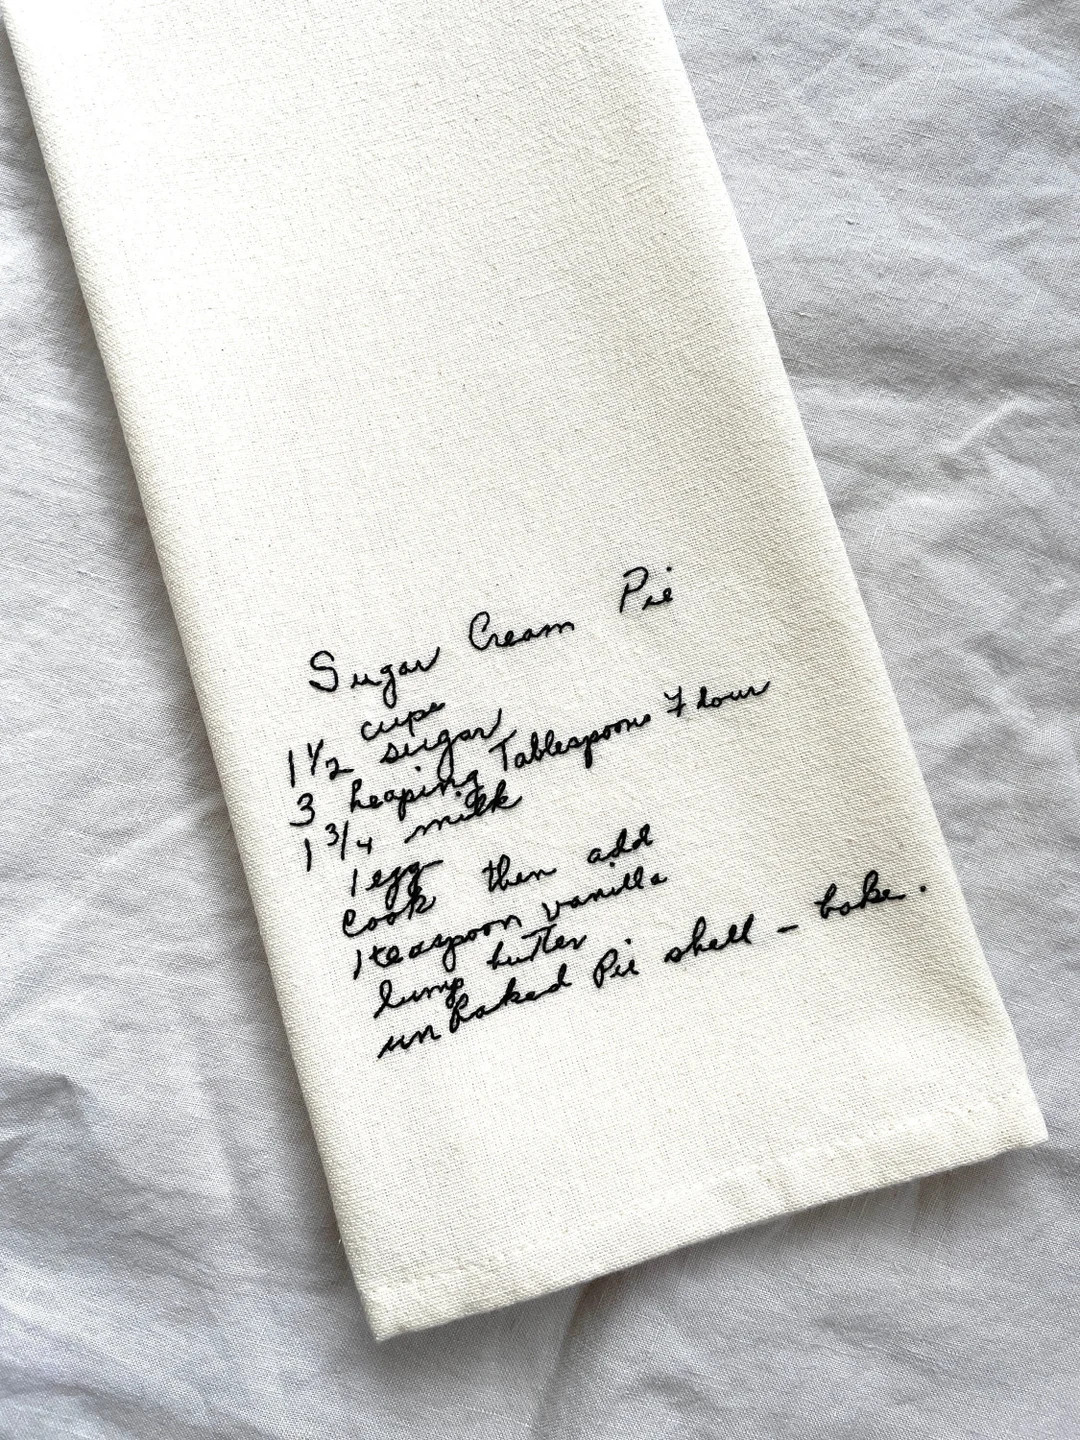 Sugar Cream Pie
1 1/2 cups sugar
3 heaping Tablespoons Flour
1 3/4 milk
1 egg
Cook then add
1 teaspoon vanilla
lump butter
unbaked Pie shell - bake.